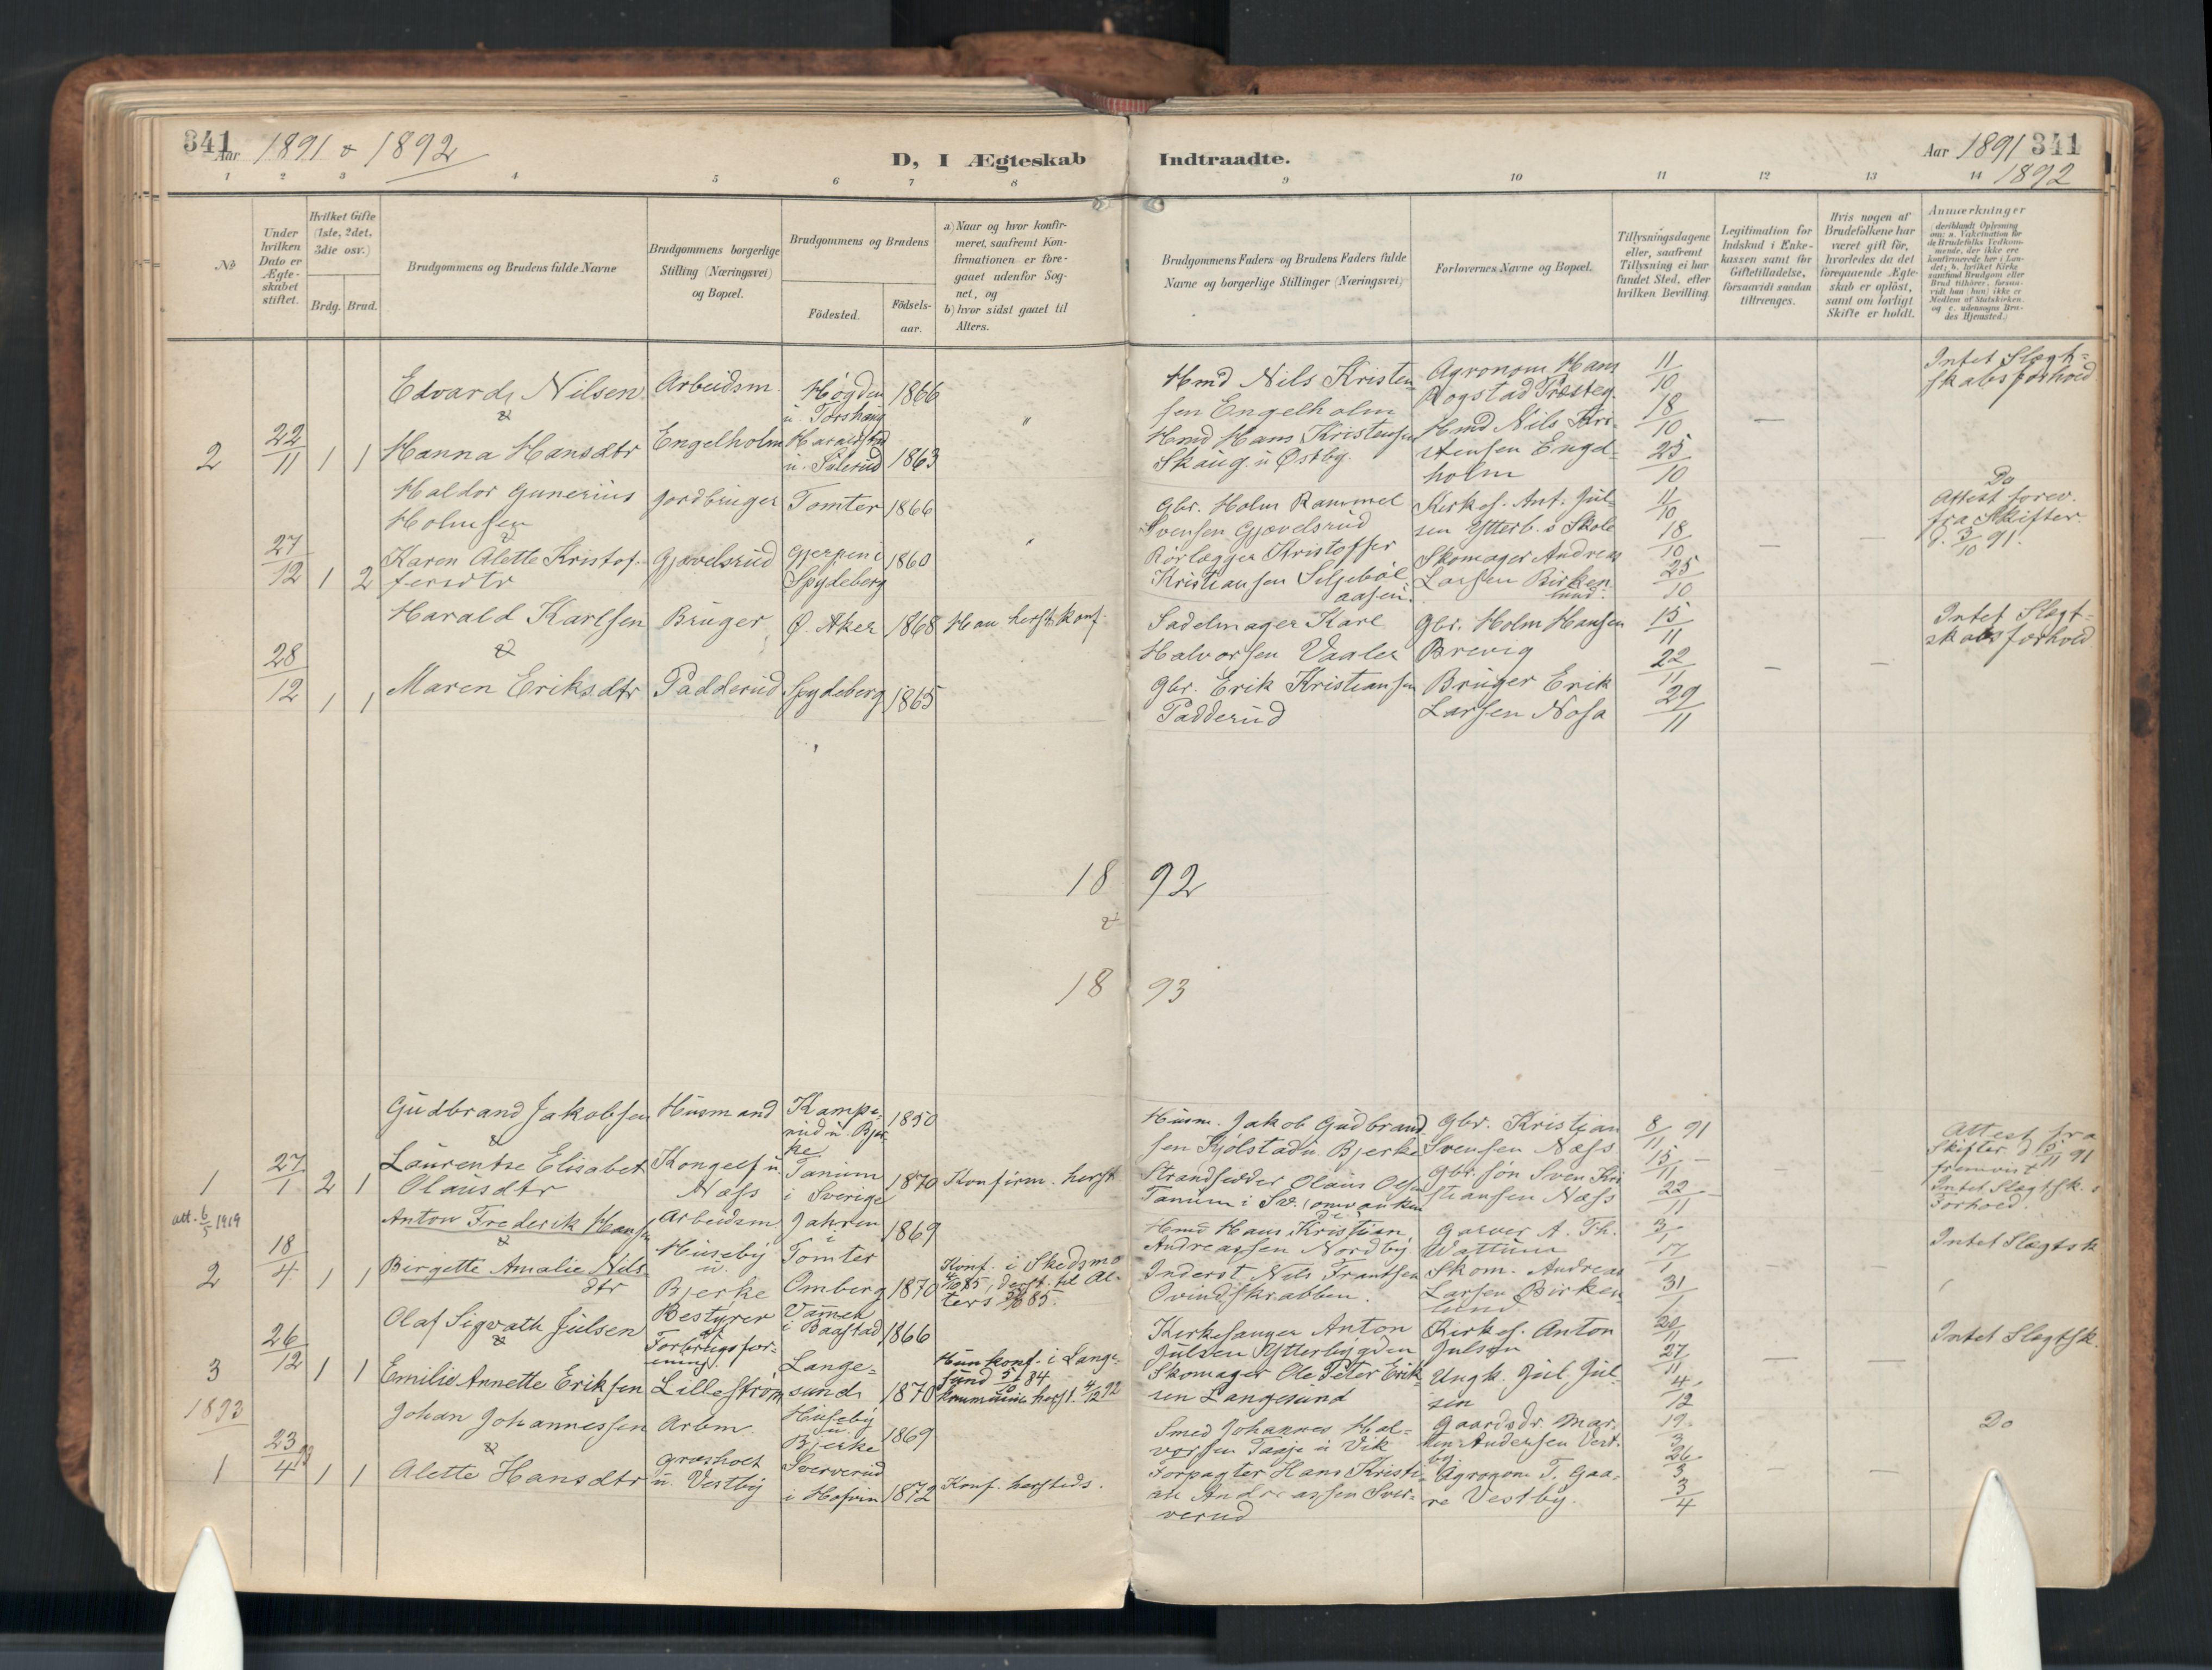 341
Aar 1891 & 1892
D, I Ægteskab
Indtraadte.
Aar 1891 341
1892
1 2 3 4 5 6 7 8 9 10 11 12 13 14
No
Under
hvilken
Dato er
Ægte-
skabet
stiftet.
Hvilket Gifte
(1ste, 2det,
3die osv.)
Brdg. Brud.
Brudgommens og Brudens fulde Navne
Brudgommens borgerlige
Stilling (Næringsvei)
og Bopæl.
Brudgommens og Brudens
Födested.
Födsels-
aar.
a) Naar og hvor konfir-
meret, saafremt Kon-
firmationen er fore-
gaaet udenfor Sog-
net, og
b) hvor sidst gaaet til
Alters.
Brudgommens Faders og Brudens Faders fulde
Navne og borgerlige Stillinger (Næringsvei)
Forlovernes Navne og Bopæl.
Tillysningsdagene
eller, saafremt
Tillysning ei har
fundet Sted, efter
hvilken Bevilling
Legitimation for
Indskud i Enke-
kassen samt for
Giftetilladelse,
forsaavidt saadan
tiltrænges.
Hvis nogen af
Brudefolkene har
været gift för,
hvorledes da det
foregaaende Ægte-
skab er oplöst,
samt om lovligt
Skifte er holdt.
Anmærkninger
(deriblandt Oplysning
om: a. Vakcination for
de Brudefolks Vedkom-
mende, der ikke ere
konfirmerede her i Lan-
det; b. hvilket Kirke-
samfund Brudgom eller
Brud tilhörer, forsaa-
vidt han (hun) ikke er
Medlem af Statskirken,
og c. udensogns Bru-
des Hjemsted.)
2
22/11
1 1
Edvard Nilsen
&
Hanna Hansdtr
Arbeidsm.
Engelholm
Högden
u. Torshaug
1866
Haraldstad
u. Sulerud
1863
"
Hmd Nils Kristen-
sen Engelholm
Hmd Hans Kristensen
Skaug u Østby.
Agronom Hans
Rogstad Præsteg.
Hmd Nils Kri-
stensen Engel-
holm
11/10
18/10
25/10
—
Intet Slægt-
skabsforhold
27/12
1 2
Haldor Gunerius
Holmsen
&
Karen Alette Kristof-
fersdtr
Jordbruger
Gjævelsrud
Tomter 1866
Gjerpen i
Spydeberg
1860
"
Gbr. Holm Rammel
Svensen Gjævelsrud
Rörlægger Kristoffer
Kristiansen Seljebøl
aasen.
Kirkes. Ant. Jul-
sen Ytterb.s Skole
Skomager Andreas
Larsen Birken
lund.
11/10
18/10
25/10
— —
Do
Attest forev.
fra Skifter.
d. 3/10 91.
28/12
1 1
Harald Karlsen
&
Maren Eriksdtr
Bruger
Padderud
Ø. Aker 1868
Spydeberg 1865
Han herst. konf.
Sadelmager Karl
Halvorsen Vaaler
Gbr. Erik Kristiansen
Padderud
Gbr. Holm Hansen
Brevig
Bruger Erik
Larsen Nosa
15/11
22/11
29/11
— —
Intet Slægt-
skabsforhold
18 92
&
18 93
1
27/1
2 1
Gudbrand Jakobsen
&
Laurentse Elisabet
Olausdtr
Husmand
Kongelf u.
Næss
Kampe-
rud u. Bjer-
ke
1850
Tanum
i Sverige
1870
Konfirm. herst.
Husm. Jakob Gudbrand-
sen Kjölstad u. Bjerke
Strandsidder Olaus Olsen
Tanum i Sv.
Gbr. Kristian
Svensen Næss
Gbr. sön Sven Kri-
stiansen Næss
8/11 91
15/11 —
22/11
—
Attest fra
Skifter. d 5/11 91
fremvist
Intet Slægtsk.
Forhold.
att. 6/5 1919
2
18/4
1 1
Anton Frederik Hansen
&
Birgette Amalie Nils-
dtr
Arbeidsm.
Huseby
u.
Bjerke
Jahren
i
Tomter
1869
Omberg 1870
Konf. i Skedsmo
85, derst. til Al-
ters 85.
Hmd Hans Kristian
Andreassen Nordby
Inderst Nils Frantsen
Ovindskrabben.
Garver A. Th.
Wattum
Skom. Andreas
Larsen Birken-
lund
3/1
17/1
31/1
Intet Slægtsk
3
26/12
1 1
Olaf Sigvath Julsen
&
Emilie Annette Eriksen
Bestyrer
af
Forbrugsfor-
ening.
Lilleström
Vammen
i Baastad
1866
Lange-
sund
1870
Hun konf. i Lange-
sund 5/10 84,
kommunic. herst. 4/12 92
Kirkesanger Anton
Julsen Ytterbygden
Skomager Ole Peter Erik-
sen Langesund
Kirkes. Anton
Julsen
Ungk. Jul. Jul-
sen
20/11
27/11
4/12
— —
Intet Slægtsk.
1893
1
23/4 93
1 1
Johan Johannessen
&
Alette Hansdtr
Arbm.
Græsholt
u. Vestby
Huseby
u.
Bjerke
1869
Sververud
i Hofvin 1872
Konf. hersteds.
Smed Johannes Hal-
vorsen Taaje u Vik
Forpagter Hans Kristi-
an Andreassen Sver-
verud
Gaardsdr Mar-
tin Andersen Vest-
by
Agronom T. Gaa-
re Vestby.
19/3
26/3
3/4
— —
Do